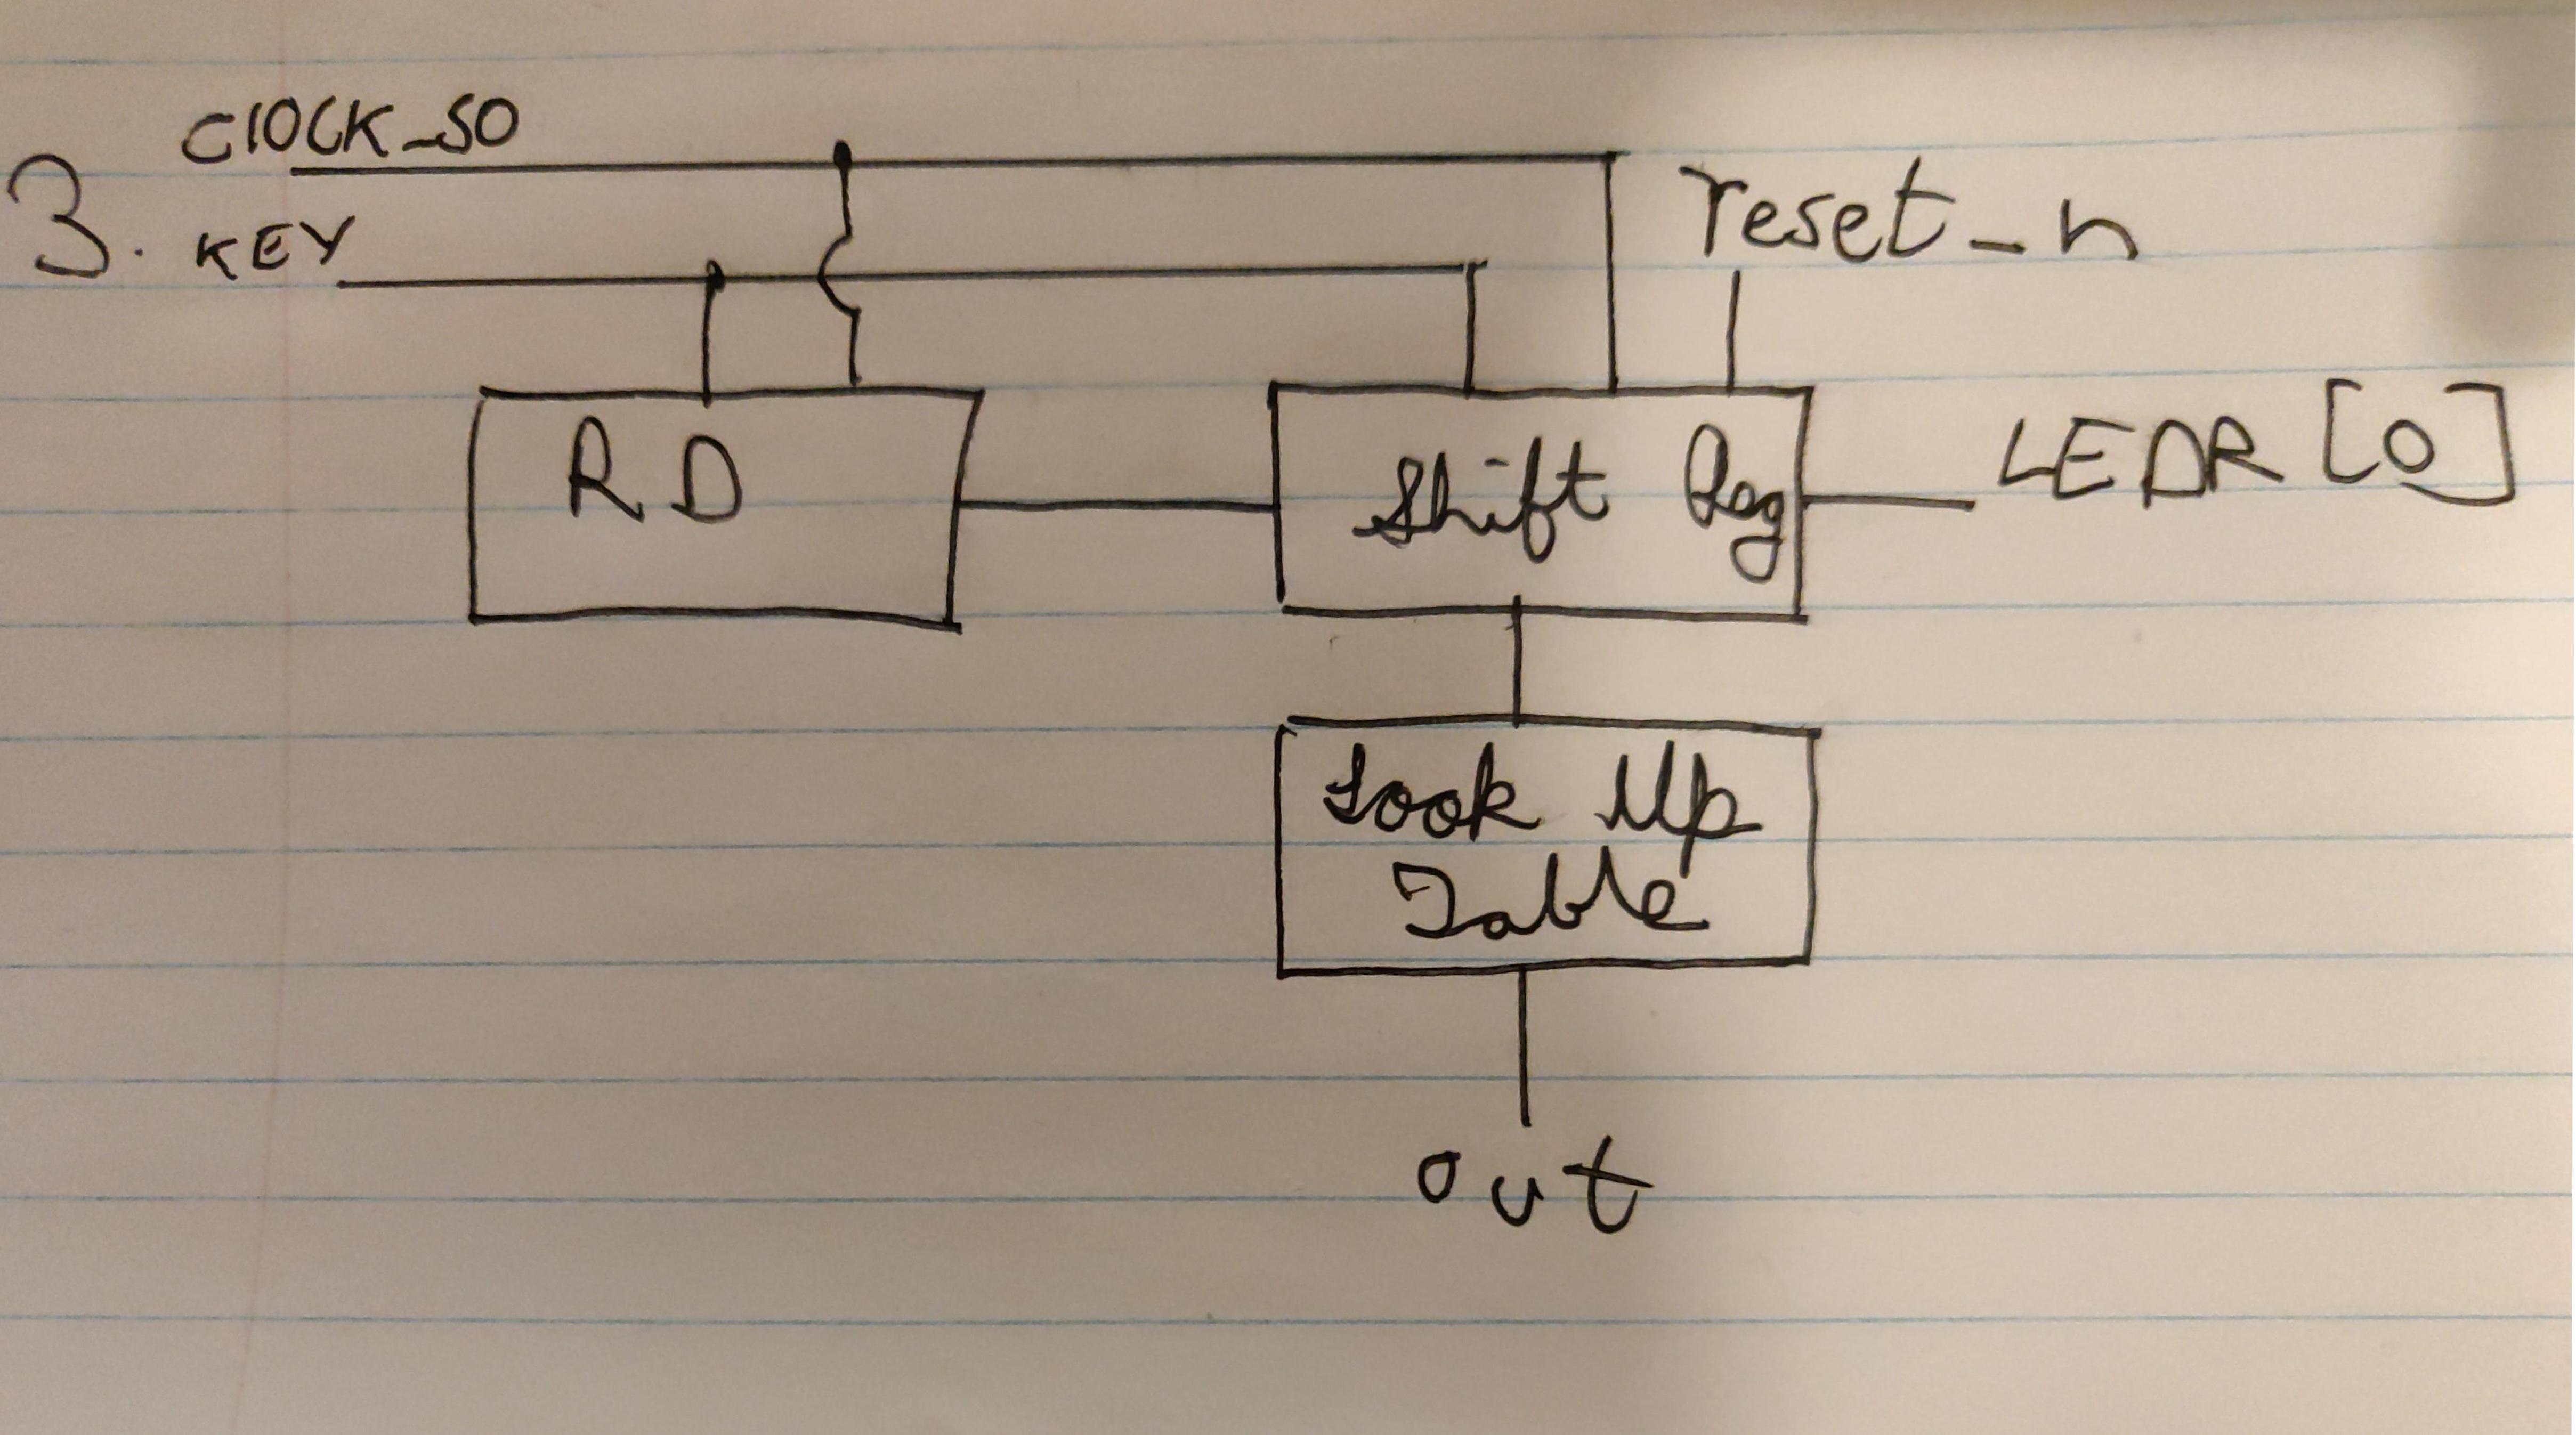 ClOCK_50
3.
KEY
reset_n
RD
Shift Reg
LEDR [0]
Look Up
Table
out